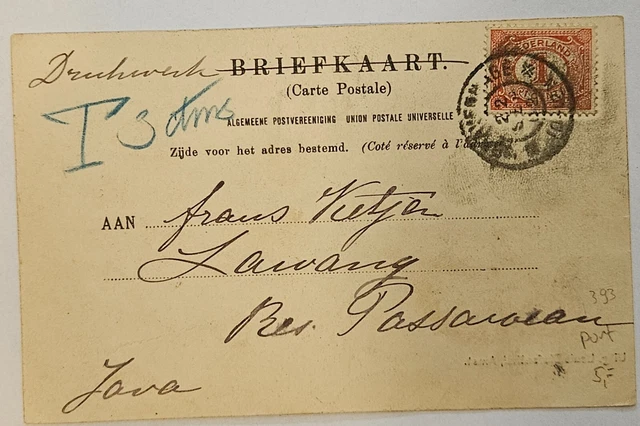 Drukwerk BRIEFKAART.
(Carte Postale)
T 3 ctms
ALGEMEENE POSTVEREENIGING UNION POSTALE UNIVERSELLE
Zijde voor het adres bestemd. (Coté réservé à l'
NEDERLAND
1
AAN frans Kietjen
Lawang
Res. Passaroean
Java
393
port
5,-